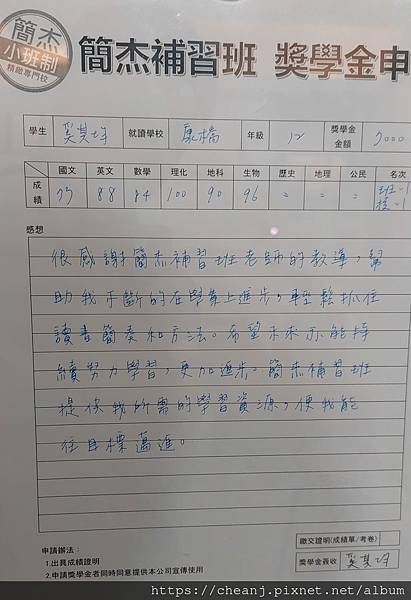 簡杰
小班制
精緻專門校
簡杰補習班 獎學金申
學生 奚其均 就讀學校 康橋 年級 12 獎學金金額 3000
國文 英文 數學 理化 地科 生物 歷史 地理 公民 名次
成績 93 88 84 100 90 96 = = = 班-1 校-1
感想
很感謝簡杰補習班老師的教導,幫
助我不斷的在學業上進步,輕鬆抓住
讀書簡奏和方法。希望未來亦能持
續努力學習,更加進步。簡杰補習班
提供我所需的學習資源,使我能
往目標邁進。
申請辦法:
1.出具成績證明
2.申請獎學金者同時同意提供本公司宣傳使用
繳交證明(成績單/考卷)
獎學金簽收 奚其均
https://cheanj.pixnet.net/album